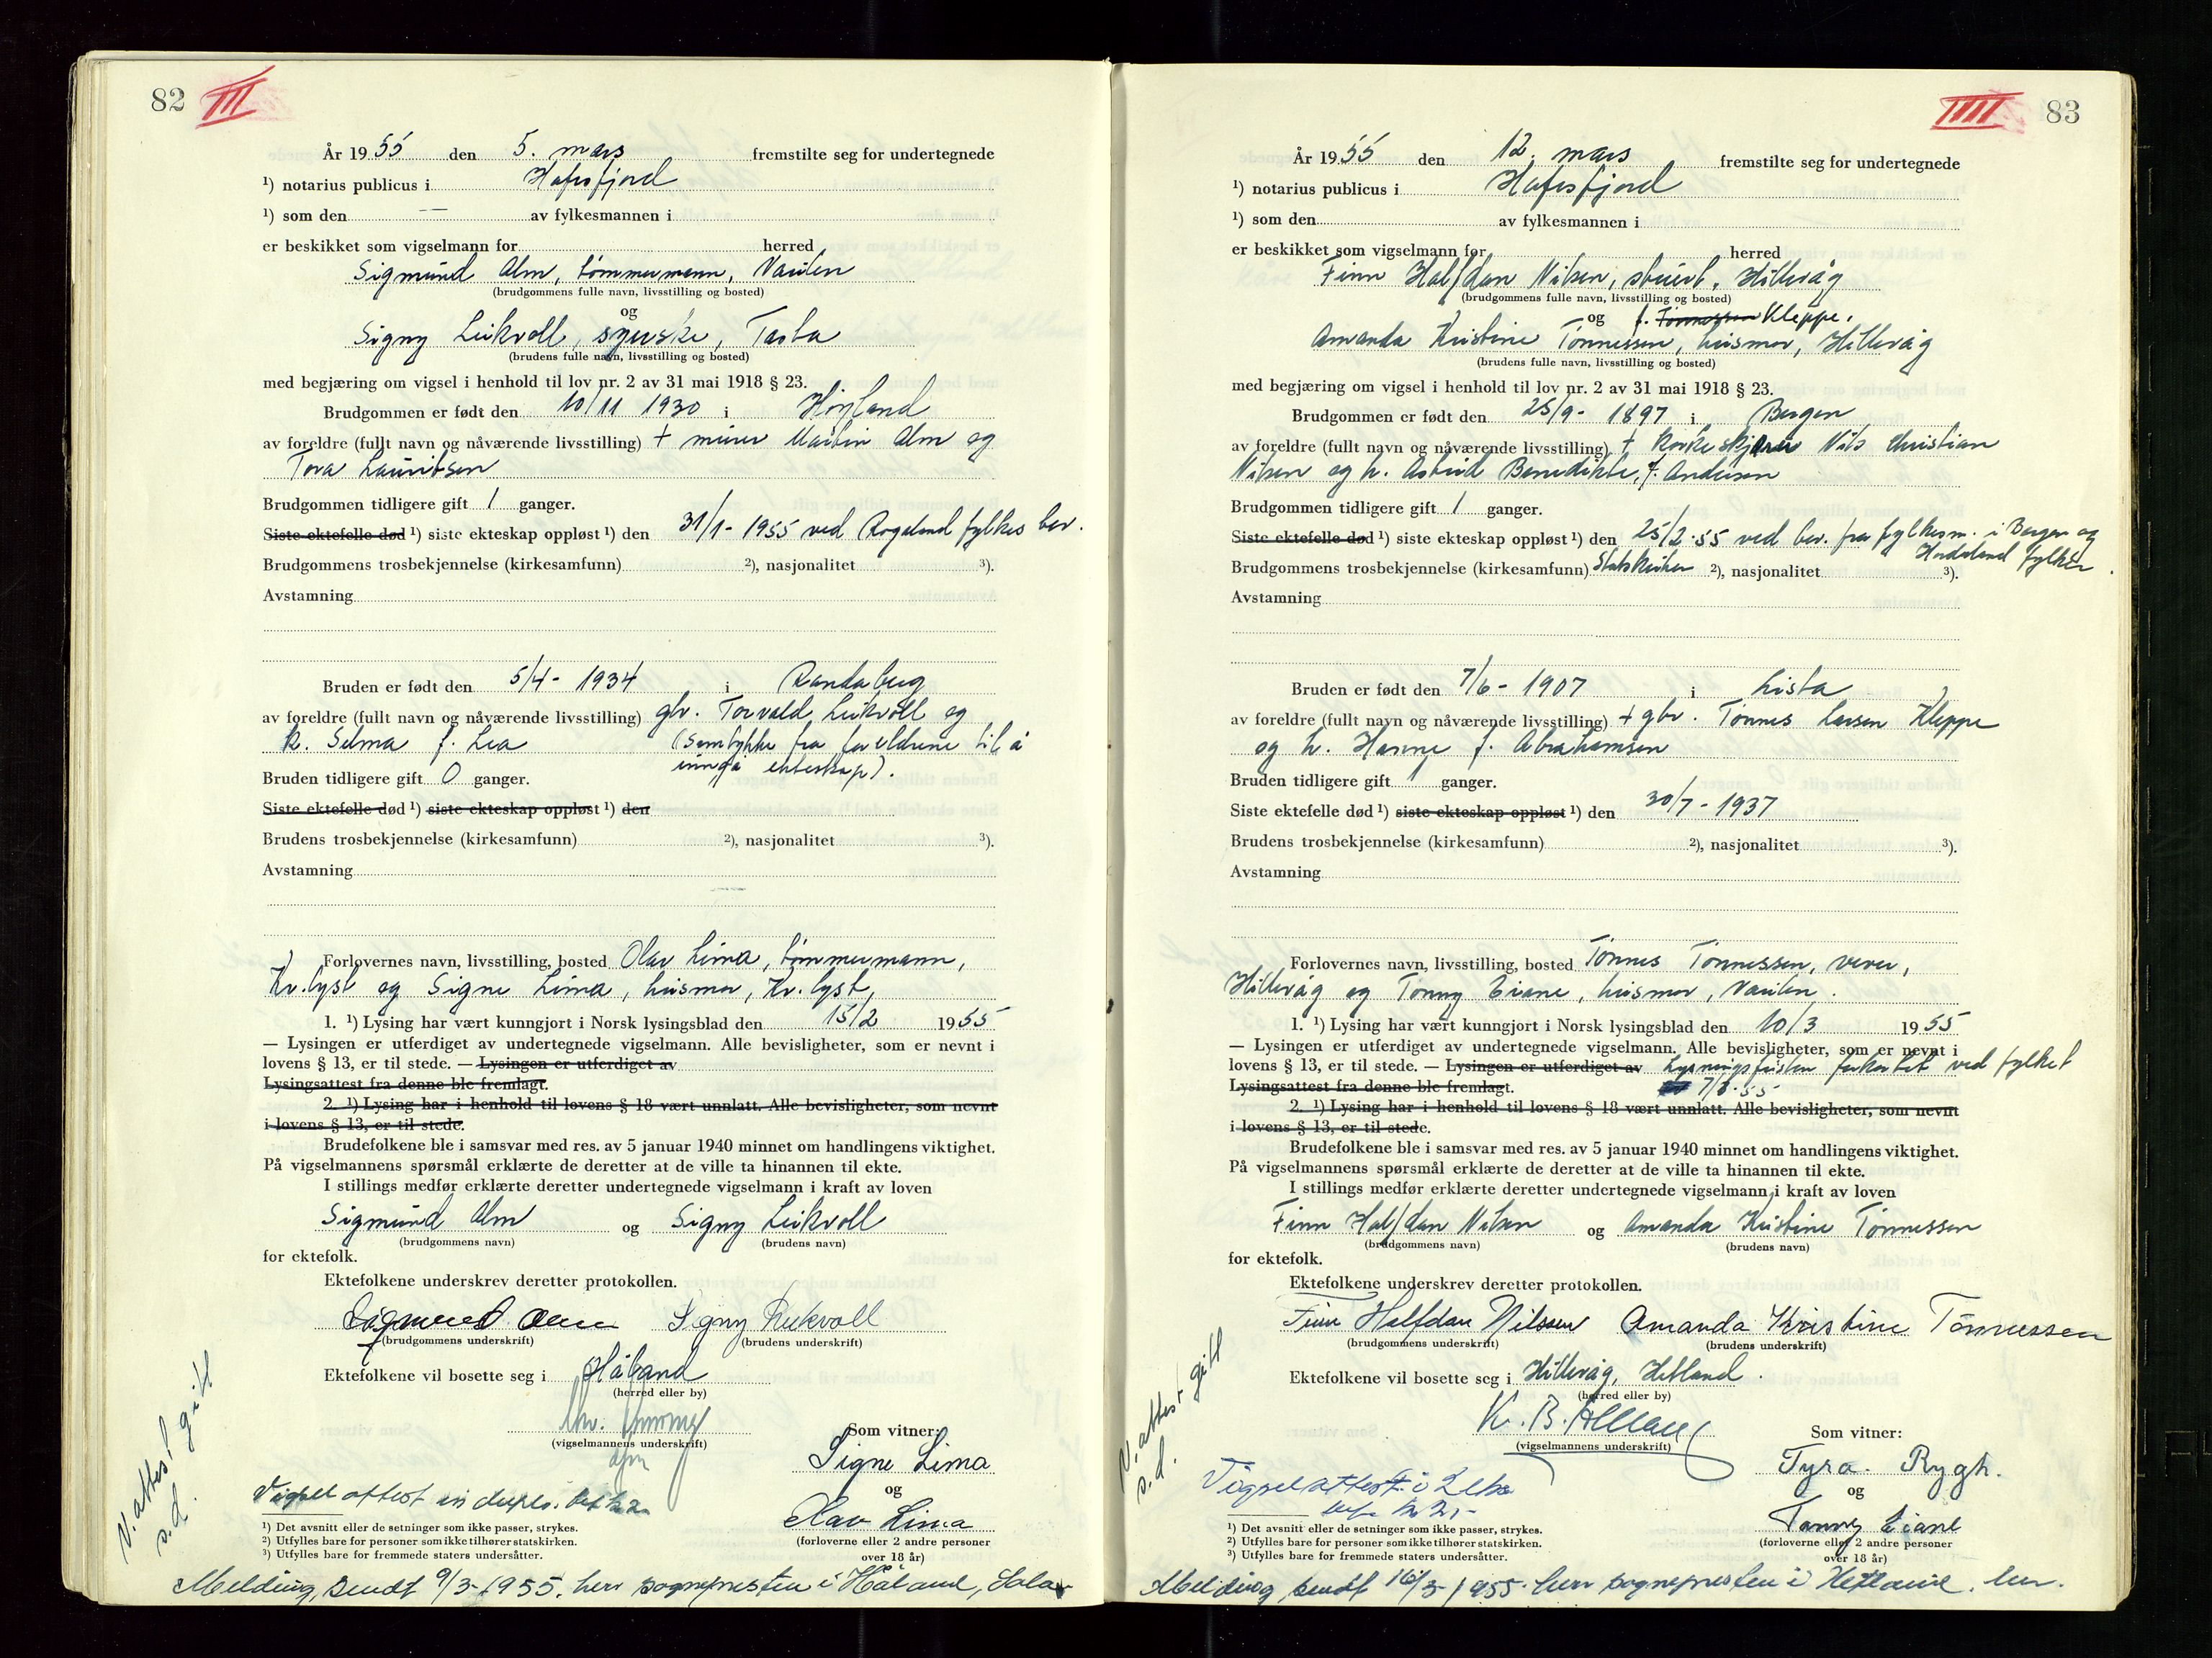 82 III
År 1955 den 5. mars fremstilte seg for undertegnede
1) notarius publicus i Hafrsfjord
1) som den — av fylkesmannen i
er beskikket som vigselmann for herred
Sigmund Alm, tømmermann, Vaulen
(brudgommens fulle navn, livsstilling og bosted)
og
Signy Leikvoll, syerske, Tasta
(brudens fulle navn, livsstilling og bosted)
med begjæring om vigsel i henhold til lov nr. 2 av 31 mai 1918 § 23.
Brudgommen er født den 10/11 1930 i Høyland
av foreldre (fullt navn og nåværende livsstilling) + murer Martin Alm og
Tora Lauritsen
Brudgommen tidligere gift 1 ganger.
Siste ektefelle død 1) siste ekteskap oppløst 1) den 31/1- 1955 ved Rogaland fylkes bev.
Brudgommens trosbekjennelse (kirkesamfunn) 2), nasjonalitet 3).
Avstamning
Bruden er født den 5/4- 1934 i Randaberg
av foreldre (fullt navn og nåværende livsstilling) gbr. Torvald Leikvoll og
h. Selma f. Lea (samtykke fra foreldrene til å
inngå ekteskap).
Bruden tidligere gift 0 ganger.
Siste ektefelle død 1) siste ekteskap oppløst 1) den
Brudens trosbekjennelse (kirkesamfunn) 2), nasjonalitet 3).
Avstamning
Forlovernes navn, livsstilling, bosted Olav Lima, tømmermann,
Kv.lyst og Signe Lima, husmor, Kv.lyst,
1. 1) Lysing har vært kunngjort i Norsk lysingsblad den 15/2 1955
— Lysingen er utferdiget av undertegnede vigselmann. Alle bevisligheter, som er nevnt i
lovens § 13, er til stede. — Lysingen er utferdiget av
Lysingsattest fra denne ble fremlagt.
2. 1) Lysing har i henhold til lovens § 18 vært unnlatt. Alle bevisligheter, som nevnt
i lovens § 13, er til stede.
Brudefolkene ble i samsvar med res. av 5 januar 1940 minnet om handlingens viktighet.
På vigselmannens spørsmål erklærte de deretter at de ville ta hinannen til ekte.
I stillings medfør erklærte deretter undertegnede vigselmann i kraft av loven
Sigmund Alm og Signy Leikvoll
(brudgommens navn) (brudens navn)
for ektefolk.
Ektefolkene underskrev deretter protokollen.
Sigmund Alm Signy Leikvoll
(brudgommens underskrift) (brudens underskrift)
Ektefolkene vil bosette seg i Håland
(herred eller by)
(vigselmannens underskrift)
Som vitner:
Signe Lima
og
Olav Lima
(forloverne eller 2 andre personer
over 18 år)
V. attest gitt
s.d.
Vigsel attest in duplo.
1) Det avsnitt eller de setninger som ikke passer, strykes.
2) Utfylles bare for personer som ikke tilhører statskirken.
3) Utfylles bare for fremmede staters undersåtter.
Melding sendt 9/3-1955. herr sognepresten i Håland, Sola
IIII 83
År 1955 den 12. mars fremstilte seg for undertegnede
1) notarius publicus i Hafrsfjord
1) som den av fylkesmannen i
er beskikket som vigselmann for herred
Finn Halfdan Nilsen, stuert, Hillevåg
(brudgommens fulle navn, livsstilling og bosted)
og f. Tønnessen Kleppe.
Amanda Kristine Tønnessen, husmor, Hillevåg
(brudens fulle navn, livsstilling og bosted)
med begjæring om vigsel i henhold til lov nr. 2 av 31 mai 1918 § 23.
Brudgommen er født den 25/9- 1897 i Bergen
av foreldre (fullt navn og nåværende livsstilling) + korkeskjærer Nils Christian
Nilsen og h. Astrid Benedikte, f. Andersen
Brudgommen tidligere gift 1 ganger.
Siste ektefelle død 1) siste ekteskap oppløst 1) den 25/2-55 ved bev. fra fylkesm. i Bergen og
Hordaland fylker.
Brudgommens trosbekjennelse (kirkesamfunn) Statskirken 2), nasjonalitet 3).
Avstamning
Bruden er født den 7/6- 1907 i Lista
av foreldre (fullt navn og nåværende livsstilling) + gbr. Tønnes Larsen Kleppe
og h. Hanne f. Abrahamsen
Bruden tidligere gift 1 ganger.
Siste ektefelle død 1) siste ekteskap oppløst 1) den 30/7-1937
Brudens trosbekjennelse (kirkesamfunn) 2), nasjonalitet 3).
Avstamning
Forlovernes navn, livsstilling, bosted Tønnes Tønnessen, vever,
Hillevåg og Tonny Eiane, husmor, Vaulen.
1. 1) Lysing har vært kunngjort i Norsk lysingsblad den 10/3 1955
— Lysingen er utferdiget av undertegnede vigselmann. Alle bevisligheter, som er nevnt i
lovens § 13, er til stede. — Lysingen er utferdiget av Lysningsfristen forkortet ved fylket
Lysingsattest fra denne ble fremlagt. 7/3-55
2. 1) Lysing har i henhold til lovens § 18 vært unnlatt. Alle bevisligheter, som nevnt
i lovens § 13, er til stede.
Brudefolkene ble i samsvar med res. av 5 januar 1940 minnet om handlingens viktighet.
På vigselmannens spørsmål erklærte de deretter at de ville ta hinannen til ekte.
I stillings medfør erklærte deretter undertegnede vigselmann i kraft av loven
Finn Halfdan Nilsen og Amanda Kristine Tønnessen
(brudgommens navn) (brudens navn)
for ektefolk.
Ektefolkene underskrev deretter protokollen.
Finn Halfdan Nilssen Amanda Kristine Tønnessen
(brudgommens underskrift) (brudens underskrift)
Ektefolkene vil bosette seg i Hillevåg, Hetland.
(herred eller by)
K. B.
(vigselmannens underskrift)
Som vitner:
Tyra Rygh.
og
Tonny Eiane
(forloverne eller 2 andre personer
over 18 år)
V. attest gitt
s.d.
Vigselattest i 2
1) Det avsnitt eller de setninger som ikke passer, strykes.
2) Utfylles bare for personer som ikke tilhører statskirken.
3) Utfylles bare for fremmede staters undersåtter.
Melding sendt 16/3-1955 herr sognepresten i Hetland, her.